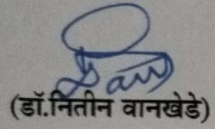 (डॉ.नितीन वानखेडे)